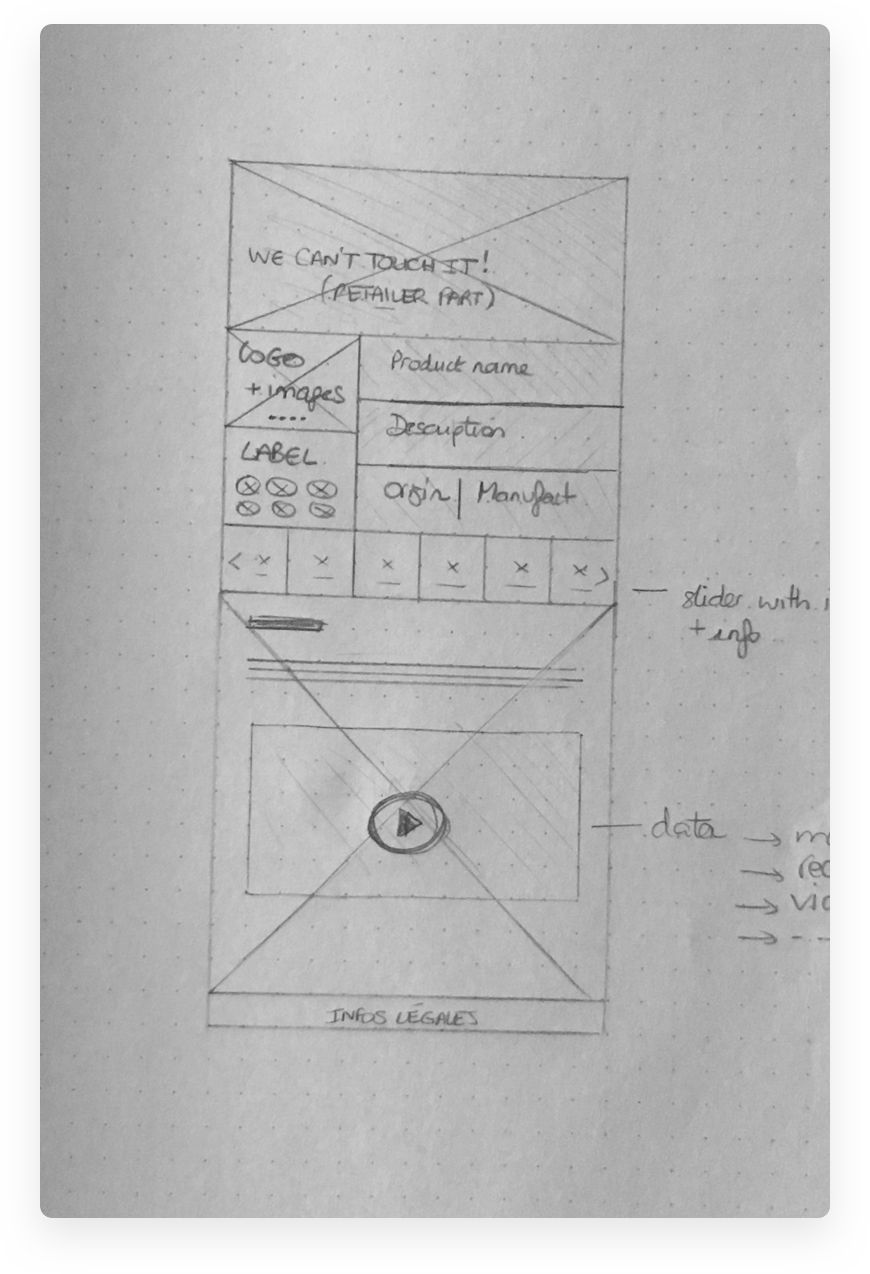 WE CAN'T TOUCH IT!
(RETAILER PART)
LOGO
+ images
....
Product name
Description
LABEL
Origin | Manufact.
slider with
+ info
data
→
→
→
→ - -
INFOS LÉGALES